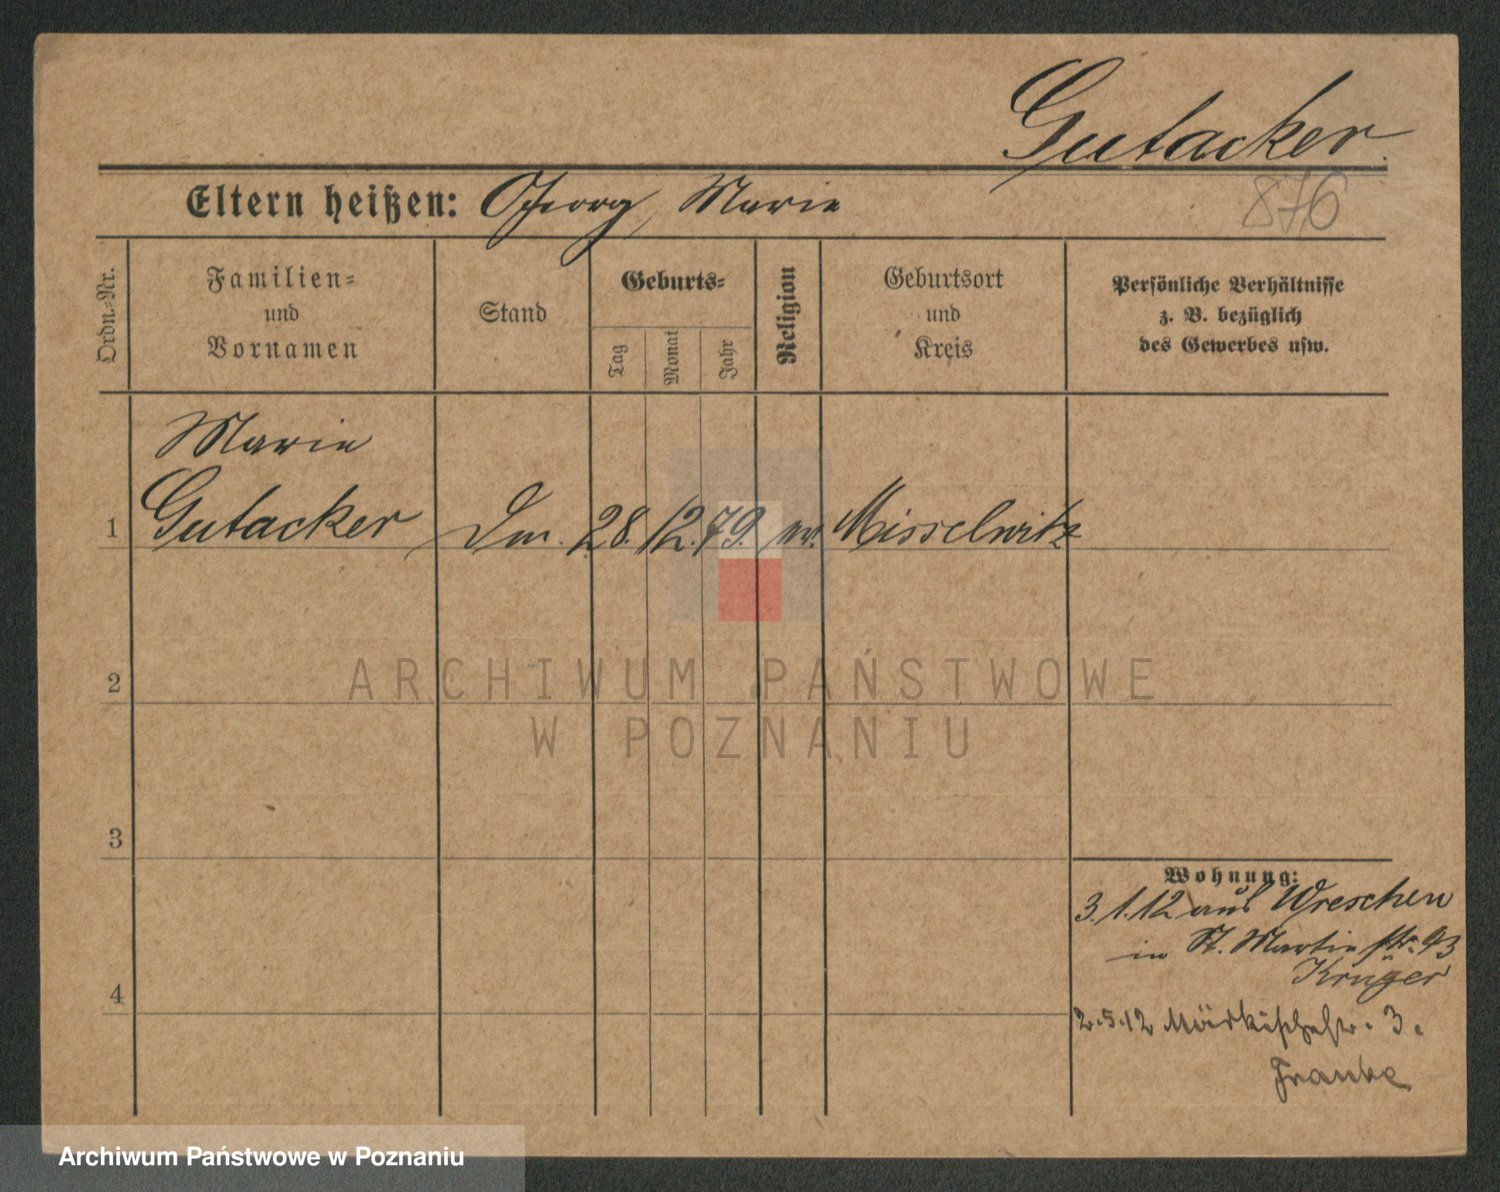 Gutacker
876
Eltern heißen: Georg, Marie
Ordn.-Nr.
Familien-
und
Vornamen
Stand
Geburts-
Tag
Monat
Jahr
Religion
Geburtsort
und
Kreis
Persönliche Verhältnisse
z. B. bezüglich
des Gewerbes usw.
Marie
1 Gutacker 28. 12. 79. ev. Misselwitz
2
3
4
Wohnung:
3.1.12 aus Wreschen
in St. Martinstr. 43
Krüger
2.5.12 Märkischestr. 3.
Franke
ARCHIWUM PAŃSTWOWE
W POZNANIU
Archiwum Państwowe w Poznaniu